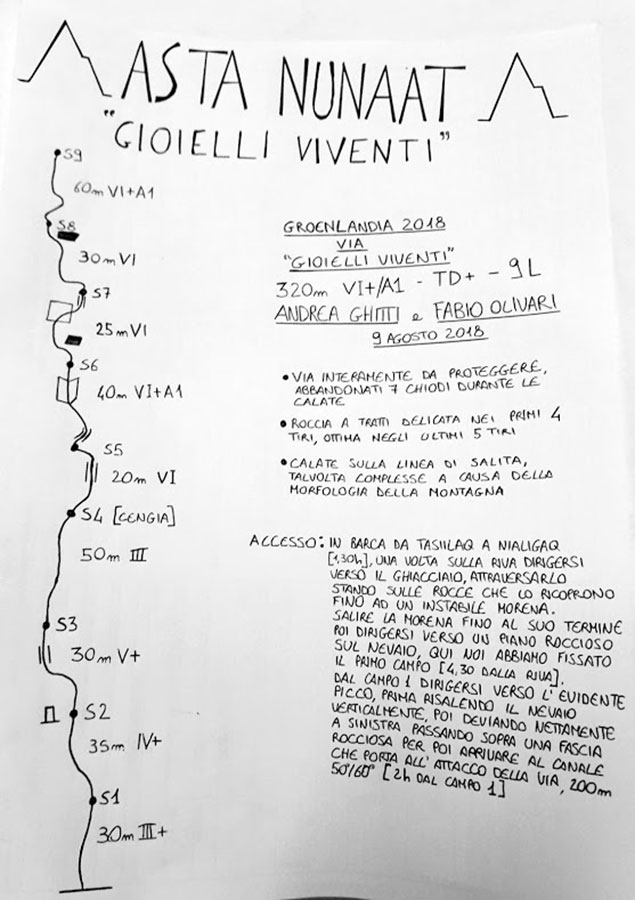 ASTA NUNAAT
"GIOIELLI VIVENTI"
S9
60m VI+A1
S8
30m VI
S7
25m VI
S6
40m VI+A1
S5
20m VI
S4 [CENGIA]
50m III
S3
30m V+
S2
35m IV+
S1
30m III+
GROENLANDIA 2018
VIA
"GIOIELLI VIVENTI"
320m VI+/A1 - TD+ - 9L
ANDREA GHITTI e FABIO OLIVARI
9 AGOSTO 2018
• VIA INTERAMENTE DA PROTEGGERE,
ABBANDONATI 7 CHIODI DURANTE LE
CALATE
• ROCCIA A TRATTI DELICATA NEI PRIMI 4
TIRI, OTTIMA NEGLI ULTIMI 5 TIRI
• CALATE SULLA LINEA DI SALITA,
TALVOLTA COMPLESSE A CAUSA DELLA
MORFOLOGIA DELLA MONTAGNA
ACCESSO: IN BARCA DA TASIILAQ A NIALIGAQ
[1,30h], UNA VOLTA SULLA RIVA DIRIGERSI
VERSO IL GHIACCIAIO, ATTRAVERSARLO
STANDO SULLE ROCCE CHE LO RICOPRONO
FINO AD UN INSTABILE MORENA.
SALIRE LA MORENA FINO AL SUO TERMINE
POI DIRIGERSI VERSO UN PIANO ROCCIOSO
SUL NEVAIO, QUI NOI ABBIAMO FISSATO
IL PRIMO CAMPO [4,30 DALLA RIVA].
DAL CAMPO 1 DIRIGERSI VERSO L'EVIDENTE
PICCO, PRIMA RISALENDO IL NEVAIO
VERTICALMENTE, POI DEVIANDO NETTAMENTE
A SINISTRA PASSANDO SOPRA UNA FASCIA
ROCCIOSA PER POI ARRIVARE AL CANALE
CHE PORTA ALL'ATTACCO DELLA VIA, 200m
50°/60° [2h DAL CAMPO 1]